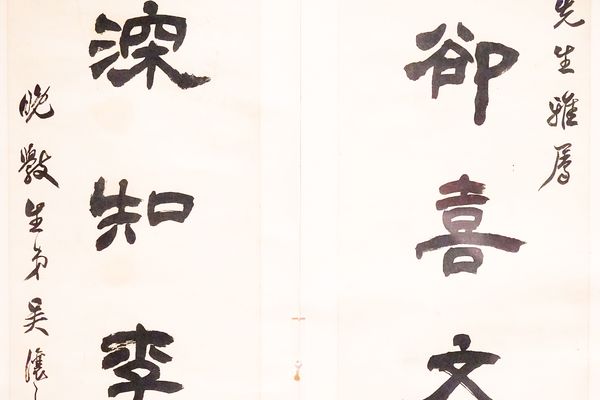 先生雅属
卻喜文
深知李
晚斅生弟吳